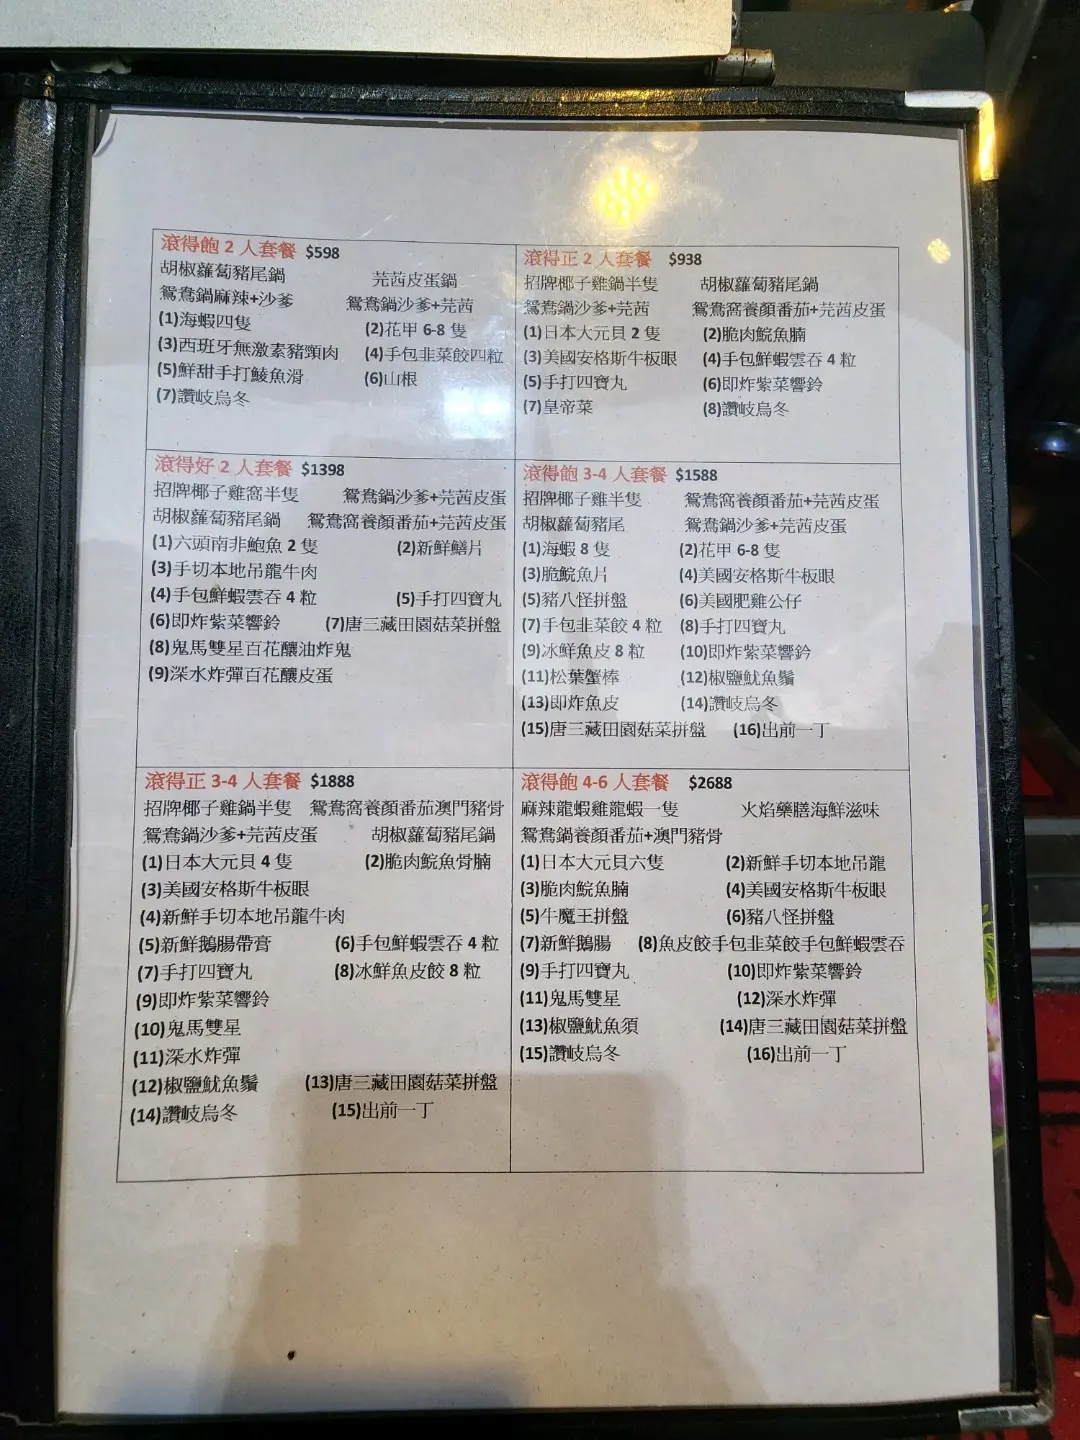 滾得飽 2 人套餐 $598
胡椒蘿蔔豬尾鍋 芫茜皮蛋鍋
鴛鴦鍋麻辣+沙爹 鴛鴦鍋沙爹+芫茜
(1)海蝦四隻 (2)花甲 6-8 隻
(3)西班牙無激素豬頸肉 (4)手包韭菜餃四粒
(5)鮮甜手打鯪魚滑 (6)山根
(7)讚岐烏冬
滾得正 2 人套餐 $938
招牌椰子雞鍋半隻 胡椒蘿蔔豬尾鍋
鴛鴦鍋沙爹+芫茜 鴛鴦窩養顏番茄+芫茜皮蛋
(1)日本大元貝 2 隻 (2)脆肉鯇魚腩
(3)美國安格斯牛板眼 (4)手包鮮蝦雲吞 4 粒
(5)手打四寶丸 (6)即炸紫菜響鈴
(7)皇帝菜 (8)讚岐烏冬
滾得好 2 人套餐 $1398
招牌椰子雞窩半隻 鴛鴦鍋沙爹+芫茜皮蛋
胡椒蘿蔔豬尾鍋 鴛鴦窩養顏番茄+芫茜皮蛋
(1)六頭南非鮑魚 2 隻 (2)新鮮鱔片
(3)手切本地吊龍牛肉
(4)手包鮮蝦雲吞 4 粒 (5)手打四寶丸
(6)即炸紫菜響鈴 (7)唐三藏田園菇菜拼盤
(8)鬼馬雙星百花釀油炸鬼
(9)深水炸彈百花釀皮蛋
滾得飽 3-4 人套餐 $1588
招牌椰子雞半隻 鴛鴦窩養顏番茄+芫茜皮蛋
胡椒蘿蔔豬尾 鴛鴦鍋沙爹+芫茜皮蛋
(1)海蝦 8 隻 (2)花甲 6-8 隻
(3)脆鯇魚片 (4)美國安格斯牛板眼
(5)豬八怪拼盤 (6)美國肥雞公仔
(7)手包韭菜餃 4 粒 (8)手打四寶丸
(9)冰鮮魚皮 8 粒 (10)即炸紫菜響鈴
(11)松葉蟹棒 (12)椒鹽魷魚鬚
(13)即炸魚皮 (14)讚岐烏冬
(15)唐三藏田園菇菜拼盤 (16)出前一丁
滾得正 3-4 人套餐 $1888
招牌椰子雞鍋半隻 鴛鴦窩養顏番茄澳門豬骨
鴛鴦鍋沙爹+芫茜皮蛋 胡椒蘿蔔豬尾鍋
(1)日本大元貝 4 隻 (2)脆肉鯇魚骨腩
(3)美國安格斯牛板眼
(4)新鮮手切本地吊龍牛肉
(5)新鮮鵝腸帶膏 (6)手包鮮蝦雲吞 4 粒
(7)手打四寶丸 (8)冰鮮魚皮餃 8 粒
(9)即炸紫菜響鈴
(10)鬼馬雙星
(11)深水炸彈
(12)椒鹽魷魚鬚 (13)唐三藏田園菇菜拼盤
(14)讚岐烏冬 (15)出前一丁
滾得飽 4-6 人套餐 $2688
麻辣龍蝦雞龍蝦一隻 火焰藥膳海鮮滋味
鴛鴦鍋養顏番茄+澳門豬骨
(1)日本大元貝六隻 (2)新鮮手切本地吊龍
(3)脆肉鯇魚腩 (4)美國安格斯牛板眼
(5)牛魔王拼盤 (6)豬八怪拼盤
(7)新鮮鵝腸 (8)魚皮餃手包韭菜餃手包鮮蝦雲吞
(9)手打四寶丸 (10)即炸紫菜響鈴
(11)鬼馬雙星 (12)深水炸彈
(13)椒鹽魷魚須 (14)唐三藏田園菇菜拼盤
(15)讚岐烏冬 (16)出前一丁